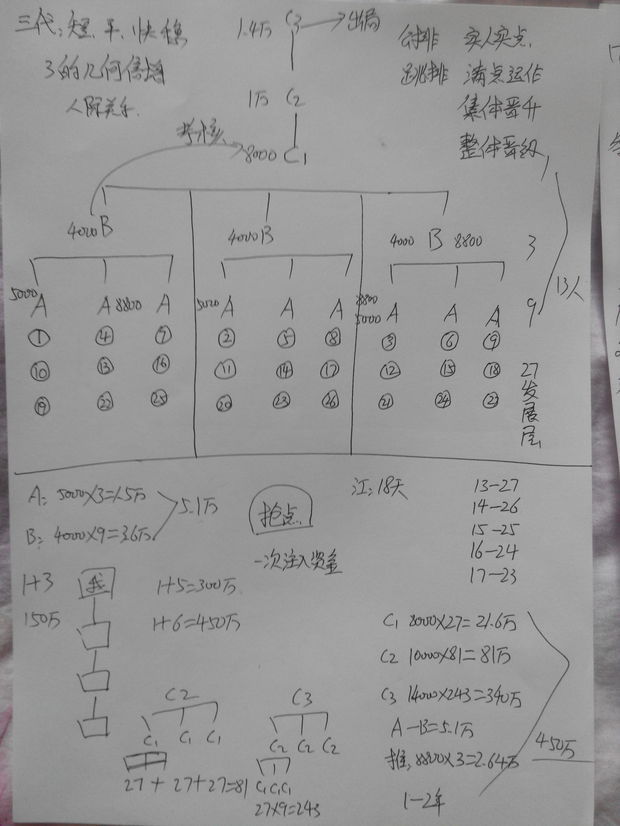 三代:短、平、快、稳
3的几何倍增
人际关系
1.4万 C3 → 出局
1万 C2
考核
8000 C1
会排 实人实点
跳排 满点运作
集体晋升
整体晋级
4000B 4000B 4000 B 8800 3
13人
5000 A A 8800 A 5000 A A A 8800 5000 A A A 9
① ④ ⑦ ② ⑤ ⑧ ③ ⑥ ⑨
⑩ ⑬ ⑯ ⑪ ⑭ ⑰ ⑫ ⑮ ⑱
⑲ ㉒ ㉕ ⑳ ㉓ ㉖ ㉑ ㉔ ㉗
27
发展层
A: 5000×3=1.5万
B: 4000×9=3.6万
5.1万
抢点
一次注入资金
江:18天
13-27
14-26
15-25
16-24
17-23
1+3 我
150万
1+5=300万
1+6=450万
C1 8000×27=21.6万
C2 10000×81=81万
C3 14000×243=340万
A-B=5.1万
推:8800×3=2.64万
450万
1-2年
C2
C1 C1 C1
27+27+27=81
C3
C2 C2 C2
C1C1C1
27×9=243